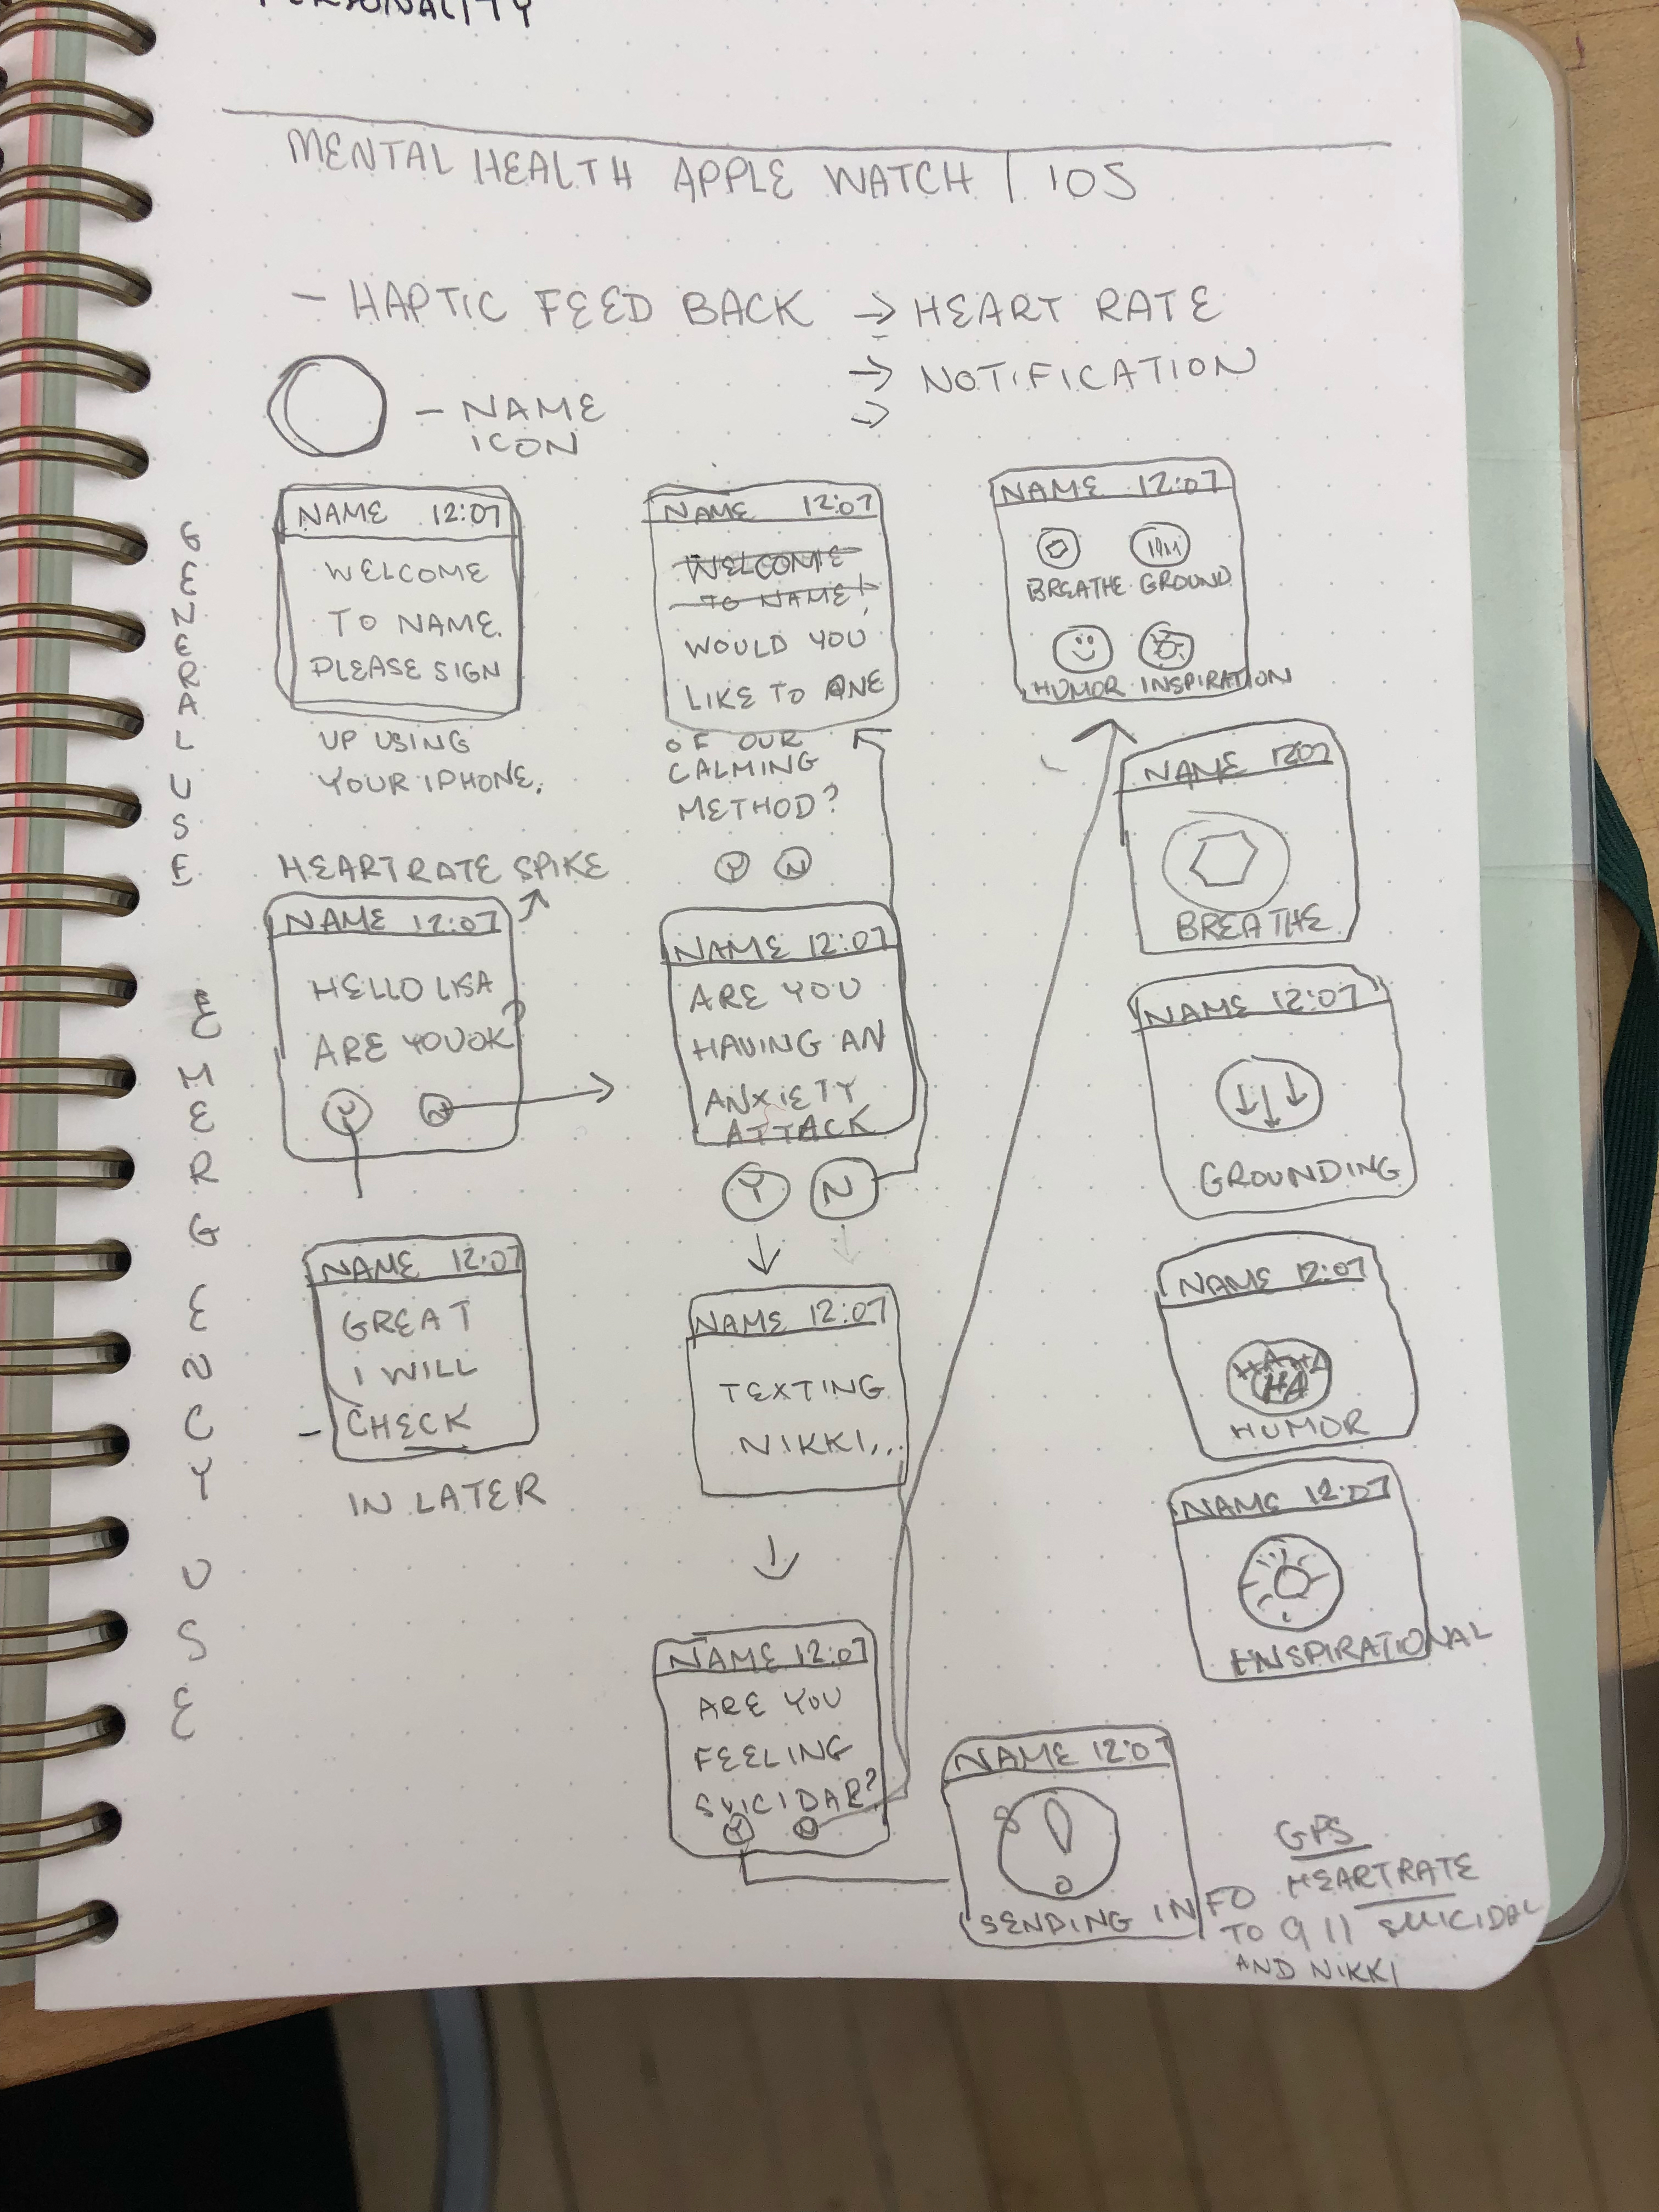 PERSONALITY
MENTAL HEALTH APPLE WATCH | IOS
- HAPTIC FEED BACK → HEART RATE
→ NOTIFICATION
→
- NAME
ICON
GENERAL USE
NAME 12:07
WELCOME
TO NAME.
PLEASE SIGN
UP USING
YOUR IPHONE.
NAME 12:07
WELCOME
TO NAME!
WOULD YOU
LIKE TO ONE
OF OUR
CALMING
METHOD?
Y N
NAME 12:07
BREATHE GROUND
HUMOR INSPIRATION
EMERGENCY USE
HEARTRATE SPIKE
NAME 12:07
HELLO LISA
ARE YOU OK?
Y N
NAME 12:07
GREAT
I WILL
- CHECK
IN LATER
NAME 12:07
ARE YOU
HAVING AN
ANXIETY
ATTACK
Y N
NAME 12:07
TEXTING
NIKKI...
NAME 12:07
ARE YOU
FEELING
SUICIDAL?
Y N
NAME 12:07
BREATHE
NAME 12:07
GROUNDING
NAME 12:07
HAHA
HA
HUMOR
NAME 12:07
INSPIRATIONAL
NAME 12:07
!
SENDING INFO
TO 911
AND NIKKI
GPS
HEARTRATE
SUICIDAL